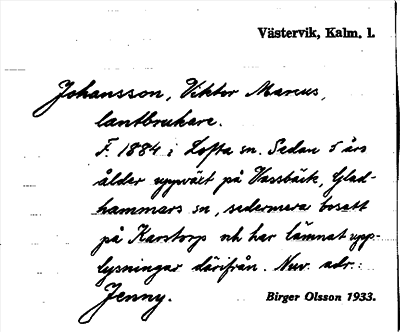 Västervik, Kalm. l.
Johansson, Viktor Marcus,
lantbrukare.
F. 1884 i Lofta sn. Sedan 5 års
ålder uppväxt på Vassbäck, Glad-
hammars sn, sedermera bosatt
på Karstorp och har lämnat upp-
lysningar därifrån. Nuv. adr.:
Jenny.
Birger Olsson 1933.